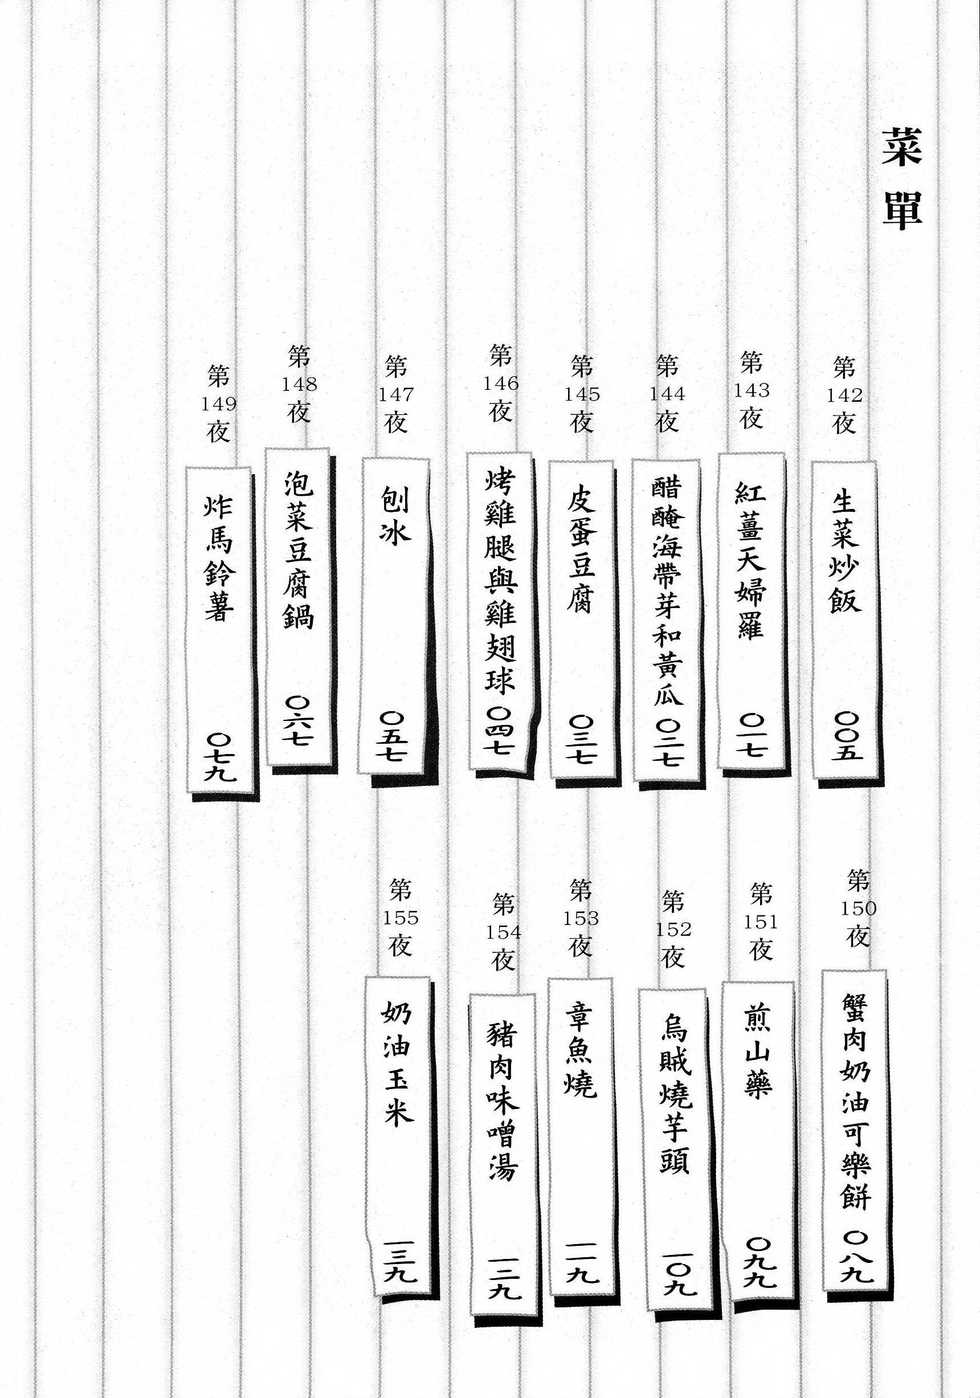 菜單
第142夜
生菜炒飯 〇〇五
第143夜
紅薑天婦羅 〇一七
第144夜
醋醃海帶芽和黃瓜 〇二七
第145夜
皮蛋豆腐 〇三七
第146夜
烤雞腿與雞翅球 〇四七
第147夜
刨冰 〇五七
第148夜
泡菜豆腐鍋 〇六七
第149夜
炸馬鈴薯 〇七九
第150夜
蟹肉奶油可樂餅 〇八九
第151夜
煎山藥 〇九九
第152夜
烏賊燒芋頭 一〇九
第153夜
章魚燒 一一九
第154夜
豬肉味噌湯 一二九
第155夜
奶油玉米 一三九